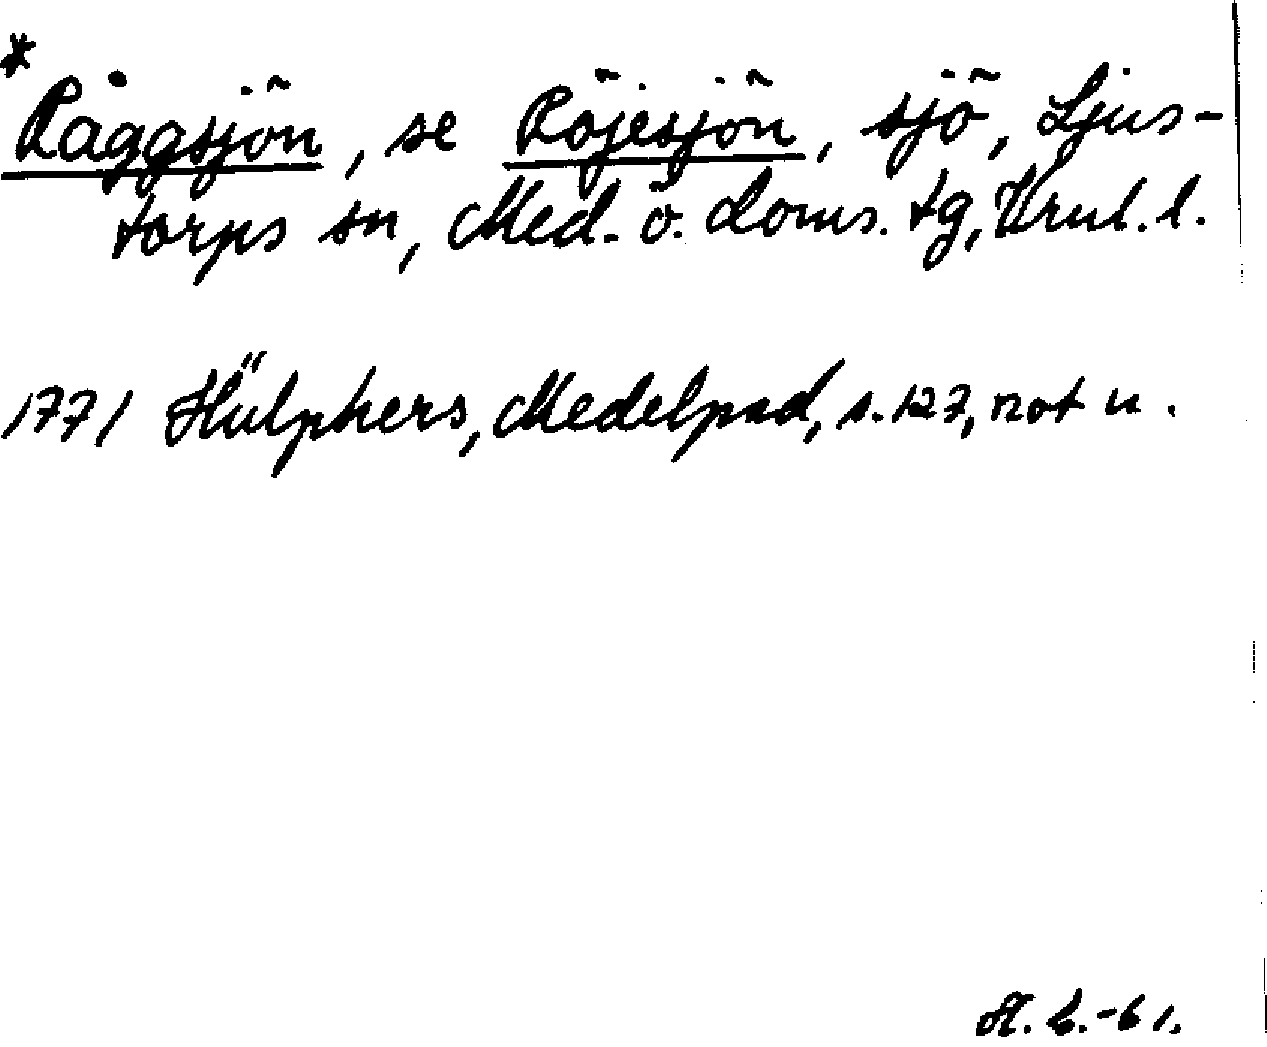 *
Råggsjön, se Röjesjön, sjö, Ljus-
torps sn, Med. ö. doms. tg, Vrnl. l.
1771 Hülphers, Medelpad, s. 127, not u.
St. b. -61.